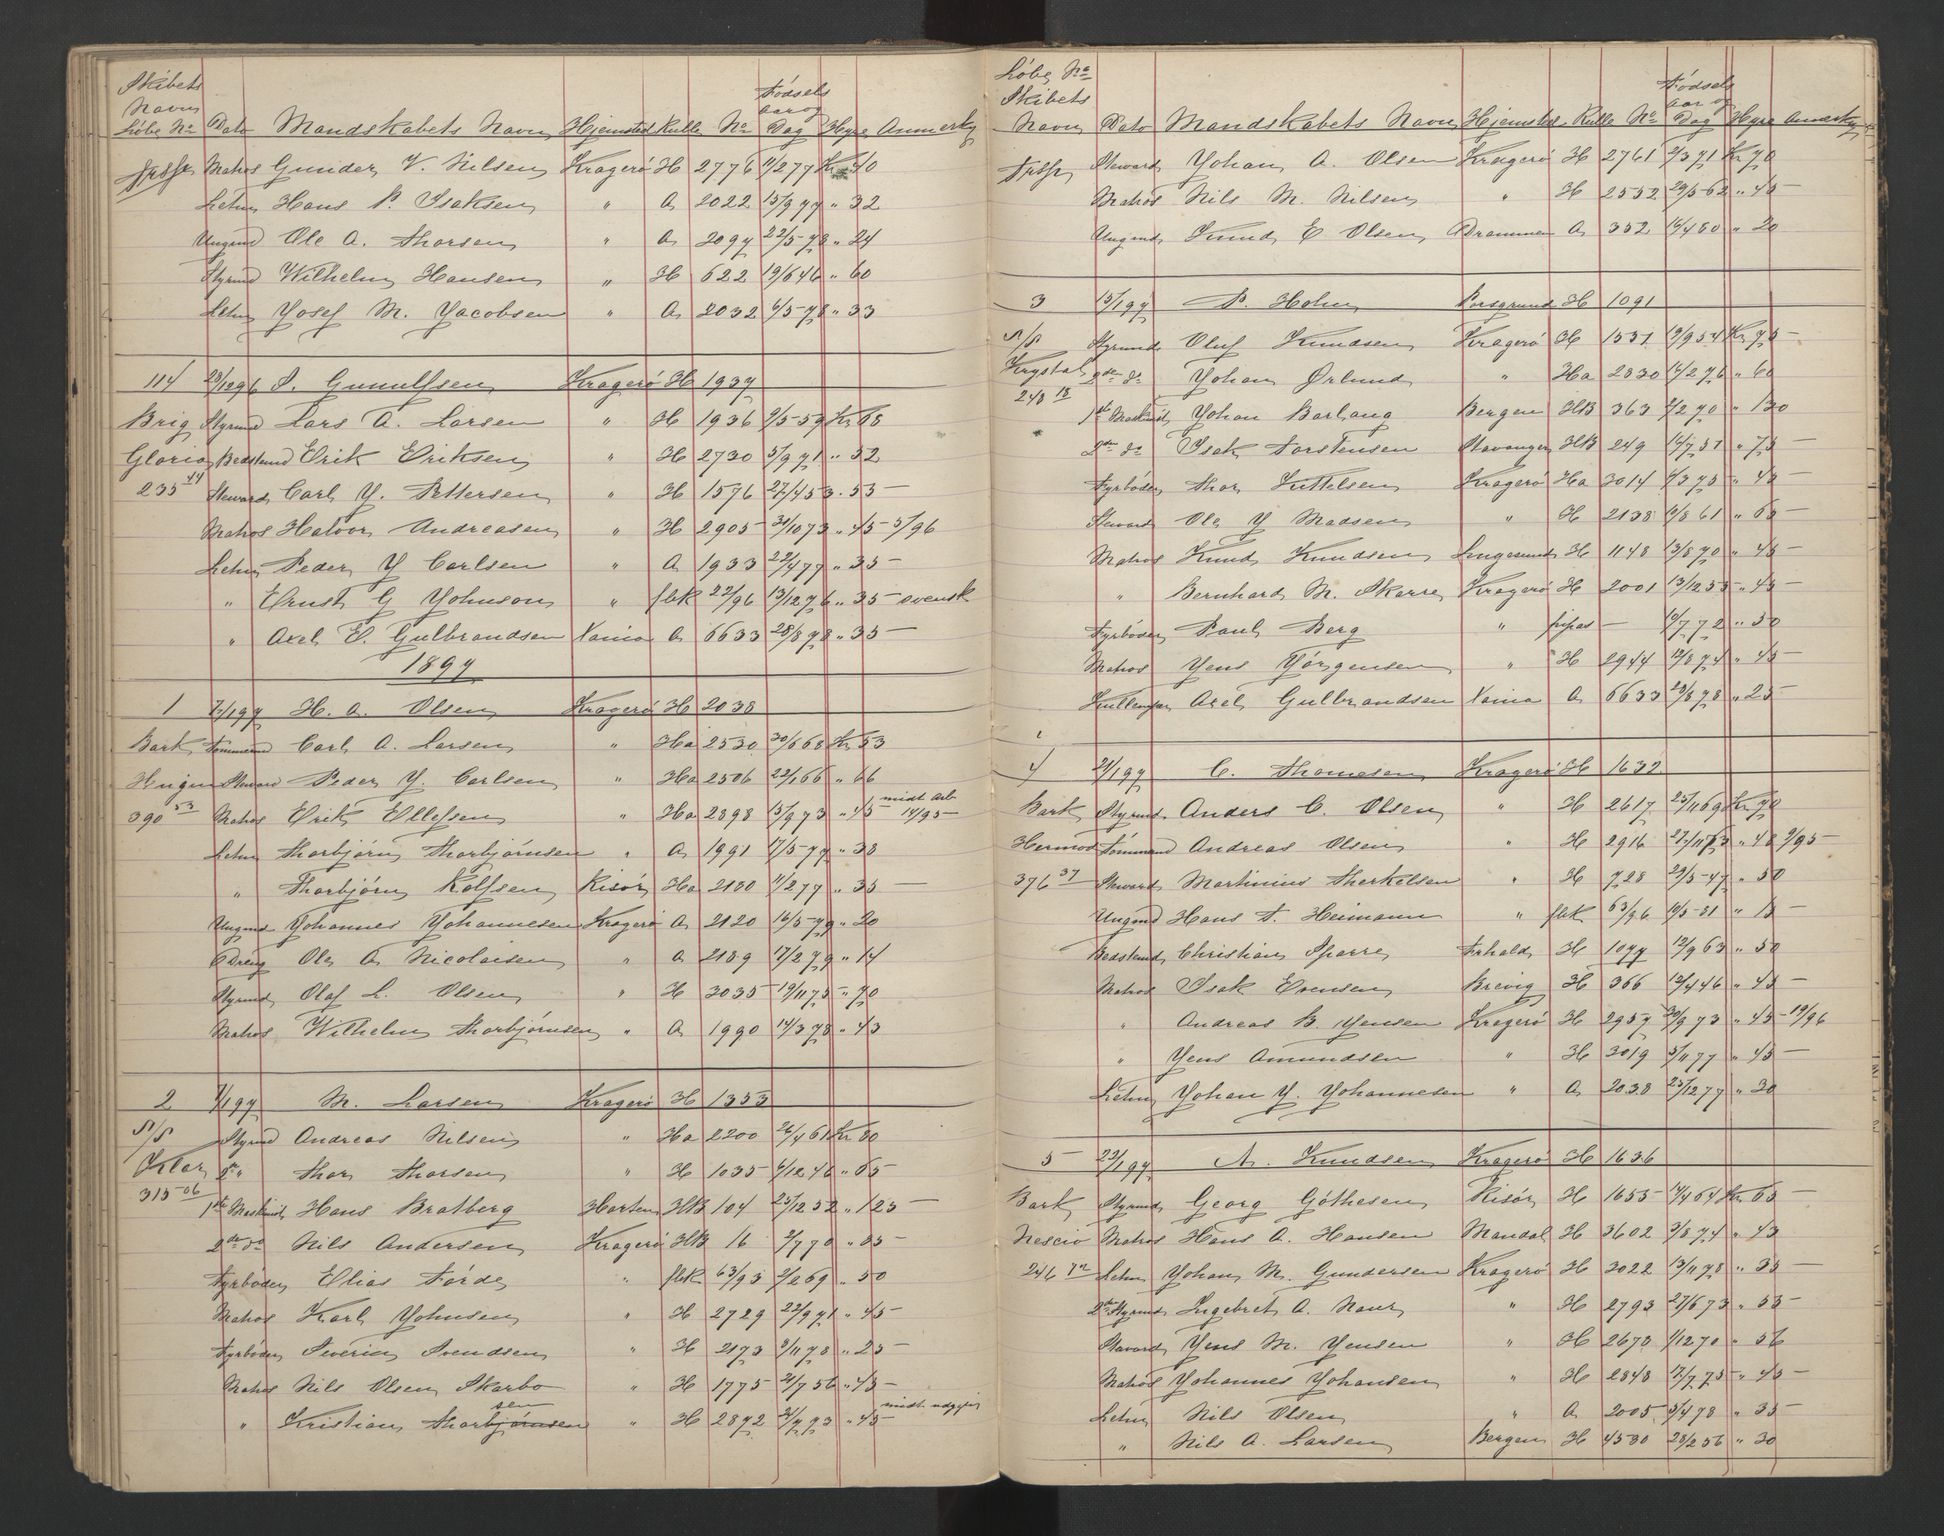 Skibets
Navn Fødsels
Løbe No Dato Mandskabets Navn Hjemsted Rulle No aar og Dag Hyre Anmerkg
Matros Gunder V. Nilsen Kragerø H 2776 11/2 77 Kr 40
Letm Hans P. Isaksen " A 2022 15/9 77 " 32
Ungmd Ole A. Thorsen " A 2097 22/5-78 " 24
Styrmd Wilhelm Hansen " H 622 19/6 46 " 60
Letm Josef M. Jacobsen " A 2032 6/5-78 " 33
114 28/12 96 S. Gunulfsen Kragerø H 1937
Brig Styrmd Lars A. Larsen " H 1936 9/5-59 Kr 68
Gloria Bedstemd Erik Eriksen " H 2730 5/9 71 " 52
235 44 Steward Carl J. Pettersen " H 1576 27/4 53 . 55-
Matros Halvor Andreasen " H 2905- 30/10 73 " 45- 5/96
Letm Peder J Carlsen " A 1933 22/4 77 " 35-
" Ernst G Johnson " fbk 22/96 13/12 76 " 35- svensk
" Axel E. Gulbrandsen Xania A 6633 28/8 78 " 35-
1897
1 7/1 97 H. A. Olsen Kragerø H 2038
Bark Tømmermd Carl A. Larsen " Ha 2530 30/6 68 Kr 53
Hugin Steward Peder J. Carlsen " Ha 2506 22/1 66 " 66
390 53 Matros Erik Ellefsen " Ha 2898 15/9 73 " 45- midt arb 14/95-
Letm Thorbjørn Thorbjørnsen " A 1991 17/5-77 " 38
" Thorbjørn Rolfsen Risør Ha 2180 11/2 77 " 35 -
Ungmd Johannes Johannesen Kragerø A 2120 16/5-79 " 20
Dreng Ole A Nicolaisen " A 2189 17/2 79 " 14
Styrmd Olaf L. Olsen " H 3035- 19/11 75- " 70
Matros Wilhelm Thorbjørnsen " A 1990 14/3 78 " 43
2 7/1 97 M. Larsen Kragerø H 1353
S/S Styrmd Andreas Nilsen " Ha 2200 26/4 61 Kr 80
Klar 2de " Thor Thorsen " H 1035- 4/12 46 " 65-
315-06 1ste Maskinist Hans Bratberg Horten HB 104 25/12 52 " 125-
2de do Nils Andersen Kragerø HB 16 2/7 70 " 85-
Fyrbøder Elias Førde " fbk 63/93 2/2 69 " 50
Matros Karl Johnsen " H 2729 22/9 71 " 45-
Fyrbøder Severin Svendsen " H 2173 9/11 78 " 25-
Matros Nils Olsen Skarbo " H 1775- 21/7 56 " 45-
sen midt udgifvn
" Kristian Thorbjørnsen " H 2872 31/7 73 " 45-
Løbe No
Skibets Fødsels
Navn Dato Mandskabets Navn Hjemsted Rulle No aar og Dag Hyre Anmerkg
Steward Johan A. Olsen Kragerø H 2761 2/3 71 Kr 70
Matros Nils M. Nilsen " H 2552 29/5-62 " 45-
Ungmd Knud E Olsen Drammen A 352 16/4 80 " 20
3 15/1 97 P. Holm Porsgrund H 1091
S/S Styrmd Oluf Knudsen Kragerø H 1551 19/9 54 Kr 75-
Krystal 2de do Johan Ørlund " Ha 2830 16/2 76 " 60
248 18 1ste Maskinist Johan Barlaug Bergen HB 363 2/2 70 " 130
2de do Isak Torstensen Stavanger HB 249 14/7 57 " 75-
Fyrbøder Thor Kittelsen Kragerø Ha 3014 4/3 75- " 45-
Steward Ole J Madsen " H 2138 10/8 61 " 65-
Matros Knud Knudsen Langesund H 1148 13/8 70 " 45-
" Bernhard M. Skarre Kragerø H 2001 13/12 55- " 45-
Fyrbøder Paul Berg " pipas - 10/7 72 " 50
Matros Jens Jørgensen " H 2944 12/8 74 " 45-
Kullemper Axel Gulbrandsen Xania A 6633 28/8 78 " 25-
4 21/1 97 C. Thomesen Kragerø H 1632
Bark Styrmd Anders C. Olsen " H 2617 25/11 69 Kr 70
Hermod Tømmermd Andreas Olsen " H 2916 27/11 73 " 48 9/95-
376 37 Steward Martinius Therkelsen " H 728 29/5-47 " 50
Ungmd Hans T. Heimann " fbk 63/96 10/5-81 " 15-
Bedstemd Christian Sparre H 1077 12/9 63 " 50
Matros Isak Evensen Brevig H 366 12/4 46 " 45-
" Andreas B. Jensen Kragerø H 2957 30/9 73 " 45- 19/96
" Jens Amundsen " H 3019 5/11 77 " 45-
Letm Johan J. Johannesen " A 2038 23/12 77 " 30
5 22/1 97 A. Knudsen Kragerø H 1636
Bark Styrmd Georg Gøthesen Risør H 1655- 14/4 64 Kr 65-
Nescio Matros Hans A. Hansen Mandal H 3602 3/8 74 " 43
246 72 Letm Johan M. Gundersen Kragerø H 3022 13/11 78 " 35-
2de Styrmd Ingebret A. Naur " H 2793 27/6 73 " 55-
Stavard Jens M. Jensen " H 2678 1/12 70 " 56
Matros Johannes Johansen " H 2848 12/7 75- " 45-
Letm Nils Olsen " A 2005- 3/4 78 " 35-
" Nils A. Larsen Bergen H 4580 28/2 56 " 30